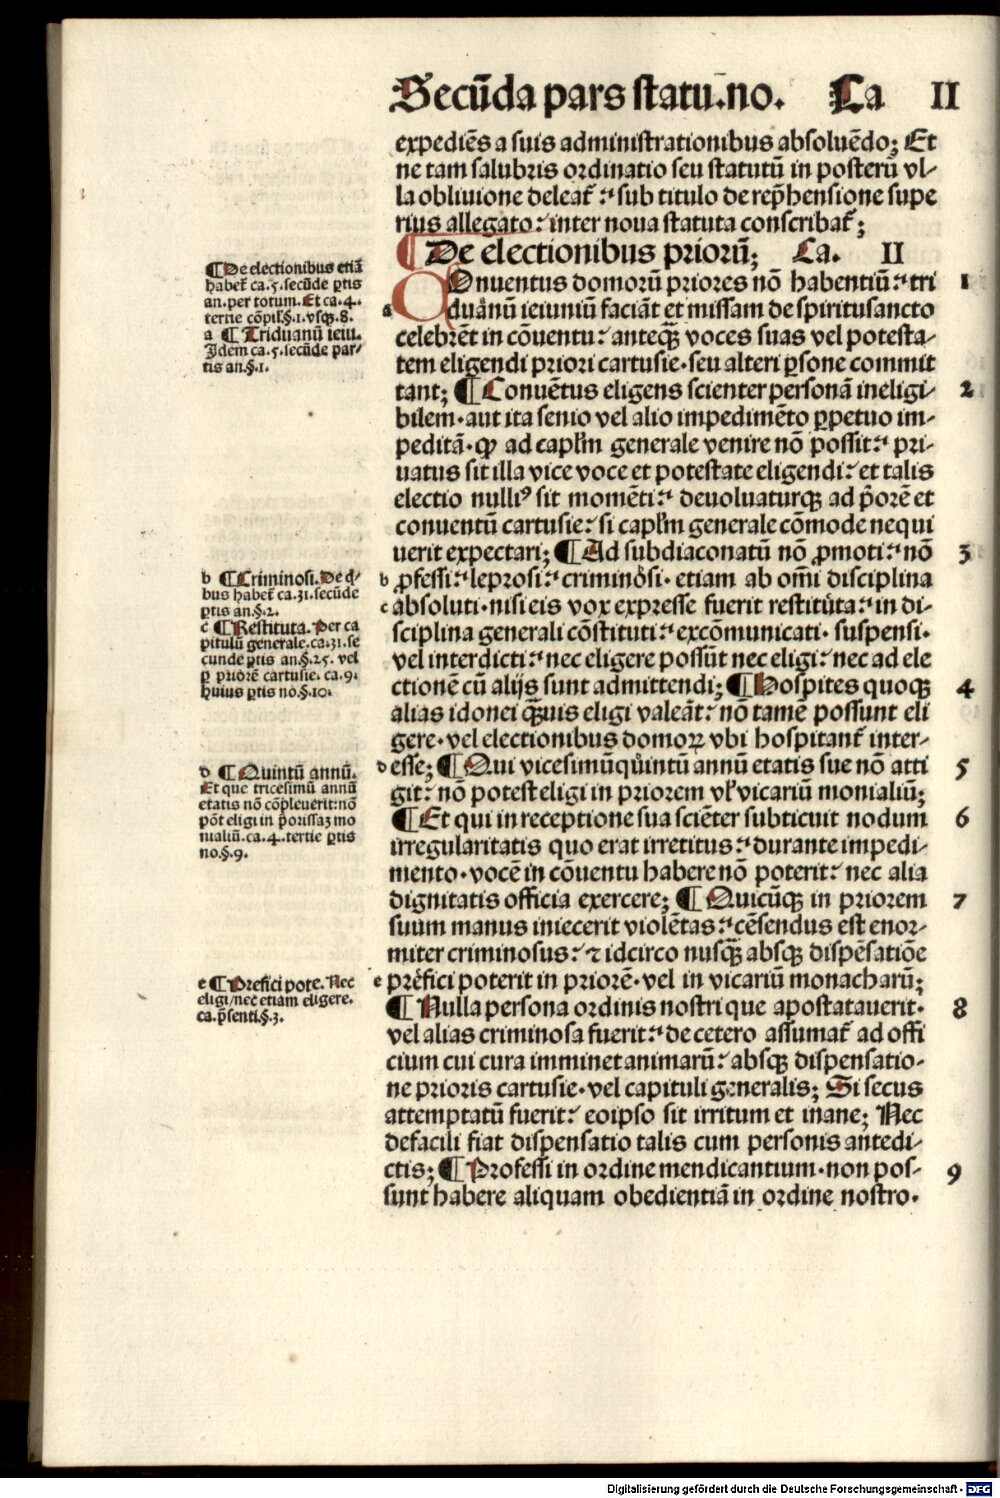 Secūda pars statu.no. Ca II
expediēs a suis administrationibus absoluēdo; Et
ne tam salubris ordinatio seu statutū in posterū vl⸗
la obliuione deleat᷑ : sub titulo de rep̄hensione supe
rius allegato : inter noua statuta conscribat᷑;
¶ De electionibus priorū; Ca. II
COnuentus domorū priores nō habentiū : tri 1
a duanū ieiuniū faciāt et missam de spiritusancto
celebrēt in cōuentu : anteqꝫ voces suas vel potesta⸗
tem eligendi priori cartusie · seu alteri ꝑsone commit
tant; ¶ Conuētus eligens scienter personā ineligi⸗ 2
bilem · aut ita senio vel alio impedimēto ꝑpetuo im⸗
peditā · ꝙ ad capl̄m generale venire nō possit : pri⸗
uatus sit illa vice voce et potestate eligendi : et talis
electio nulliꝰ sit momēti : deuoluaturqꝫ ad p̄orē et
conuentū cartusie : si capl̄m generale cōmode nequi
uerit expectari; ¶ Ad subdiaconatū nō ꝓmoti : nō 3
b ꝓfessi : leprosi : criminosi · etiam ab om̄i disciplina
c absoluti · nisi eis vox expresse fuerit restituta : in di⸗
sciplina generali cōstituti : excōmunicati · suspensi ·
vel interdicti : nec eligere possūt nec eligi : nec ad ele
ctionē cū alijs sunt admittendi; ¶ Hospites quoqꝫ 4
alias idonei qꝫuis eligi valeāt : nō tamē possunt eli
gere · vel electionibus domoꝝ vbi hospitant᷑ inter⸗
d esse; ¶ Qui vicesimūquintū annū etatis sue nō atti 5
git : nō potest eligi in priorem vl̓ vicariū monialiū;
¶ Et qui in receptione sua sciēter subticuit nodum 6
irregularitatis quo erat irretitus : durante impedi⸗
mento · vocē in cōuentu habere nō poterit : nec alia
dignitatis officia exercere; ¶ Quicūqꝫ in priorem 7
suum manus iniecerit violētas : cēsendus est enor⸗
miter criminosus : ⁊ idcirco nusqꝫ̄ absqꝫ dispēsatiōe
e prefici poterit in priorē · vel in vicariū monacharū;
¶ Nulla persona ordinis nostri que apostatauerit · 8
vel alias criminosa fuerit : de cetero assumat᷑ ad offi
cium cui cura imminet animarū : absqꝫ dispensatio⸗
ne prioris cartusie · vel capituli generalis; Si secus
attemptatū fuerit : eoipso sit irritum et inane; Nec
defacili fiat dispensatio talis cum personis antedi⸗
ctis; ¶ Professi in ordine mendicantium · non pos⸗ 9
sunt habere aliquam obedientiā in ordine nostro.
¶ De electionibus etiā
habet᷑ ca.5.secūde ꝑtis
an.per totum. Et ca.4.
tertie cōpil.§.1.vsqꝫ.8.
a ¶ Triduanū ieiu.
Idem ca.5.secūde par⸗
tis an.§.1.
b ¶ Criminosi. De q̇⸗
bus habet᷑ ca.31.secūde
ꝑtis an.§.2.
c ¶ Restituta. Per ca
pitulū generale.ca.31.se
cunde ꝑtis an.§.25. vel
ꝑ priorē cartusie. ca.9.
huius ꝑtis no.§.10.
d ¶ Quintū annū.
Et que tricesimū annū
etatis nō cōpleuerit : nō
pōt eligi in p̄orissaꝫ mo
nialiū.ca.4.tertie ꝑtis
no.§.9.
e ¶ Prefici pote. Nec
eligi/nec etiam eligere.
ca.p̄senti.§.3.
Digitalisierung gefördert durch die Deutsche Forschungsgemeinschaft - DFG